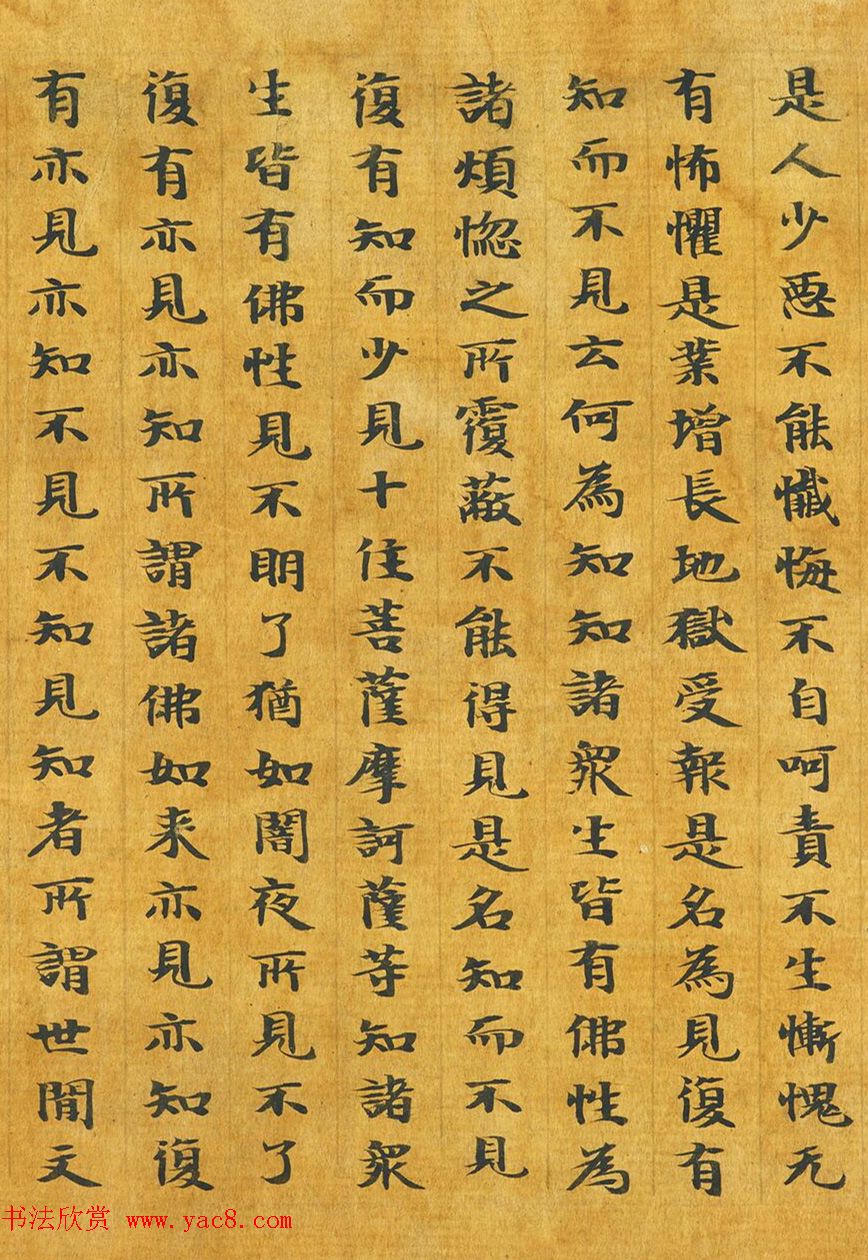 是人少惡不能懺悔不自呵責不生慚愧无
有怖懼是業增長地獄受報是名為見復有
知而不見云何為知知諸眾生皆有佛性為
諸煩惱之所覆蔽不能得見是名知而不見
復有知而少見十住菩薩摩訶薩等知諸眾
生皆有佛性見不明了猶如闇夜所見不了
復有亦見亦知所謂諸佛如来亦見亦知復
有亦見亦知不見不知見知者所謂世間文
书法欣赏 www.yac8.com